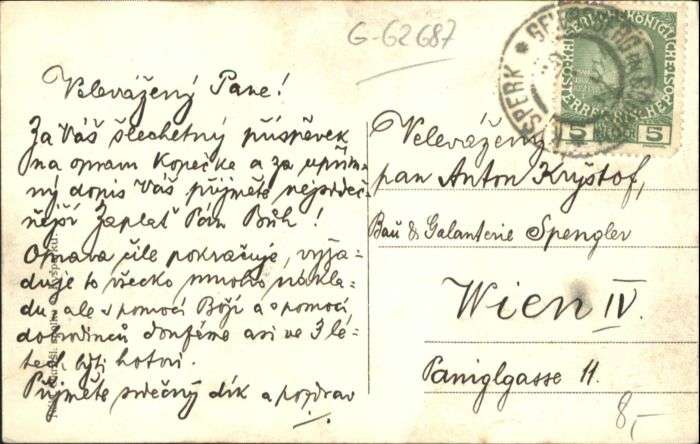 G-62687
Velevážený Pane!
Za Váš šlechetný příspěvek
na opravu Kopečka a za upřím-
ný dopis Váš přijměte nejsrdeč-
nější Zaplať Pán Bůh!
Oprava čile pokračuje, vyža-
duje to všecko mnoho nákla-
du ale s pomocí Boží a s pomocí
dobrodinců doufáme asi ve 3 le-
tech býti hotovi.
Přijměte srdečný dík a pozdrav
KYSPERK
5 5
Velevážený
pan Anton Kryštof,
Bau & Galanterie Spengler
Wien IV.
Paniglgasse 11.
8,-